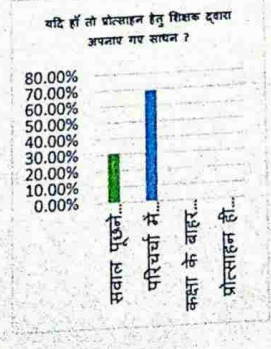 यदि हाँ तो प्रोत्साहन हेतु शिक्षक द्वारा
अपनाए गए साधन ?
80.00%
70.00%
60.00%
50.00%
40.00%
30.00%
20.00%
10.00%
0.00%
सवाल पूछने...
परिचर्चा में...
कक्षा के बाहर...
प्रोत्साहन ही...